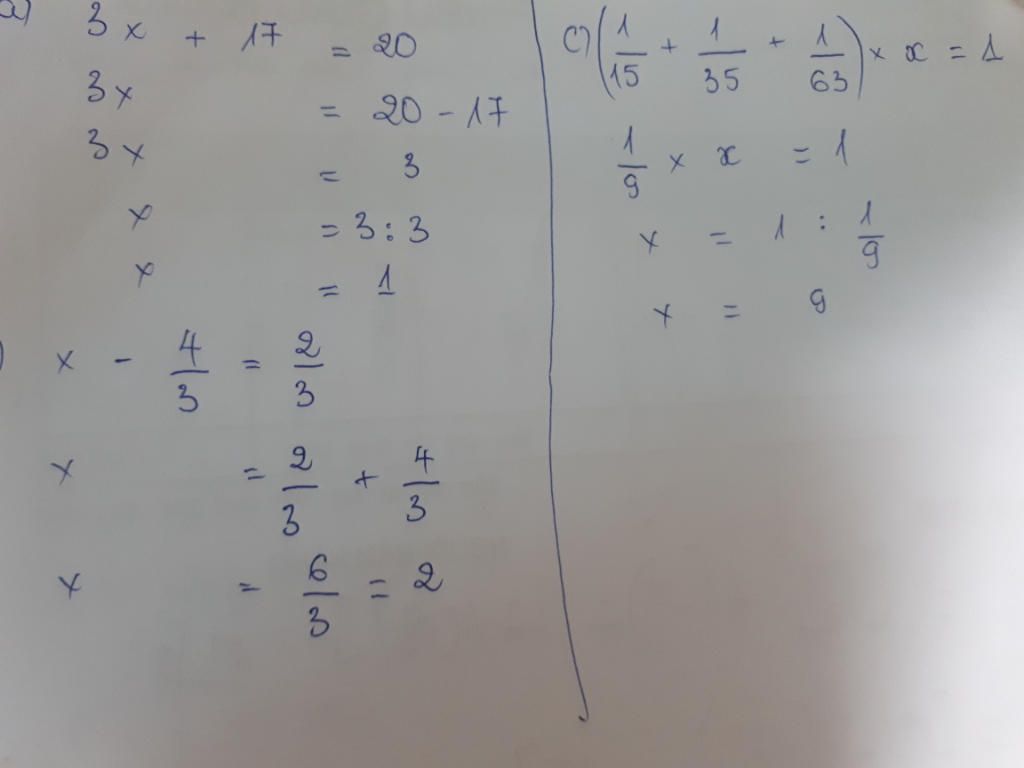 a) 3x + 17 = 20
3x = 20 - 17
3x = 3
x = 3 : 3
x = 1
) x - 4/3 = 2/3
x = 2/3 + 4/3
x = 6/3 = 2
c) (1/15 + 1/35 + 1/63) × x = 1
1/9 × x = 1
x = 1 : 1/9
x = 9